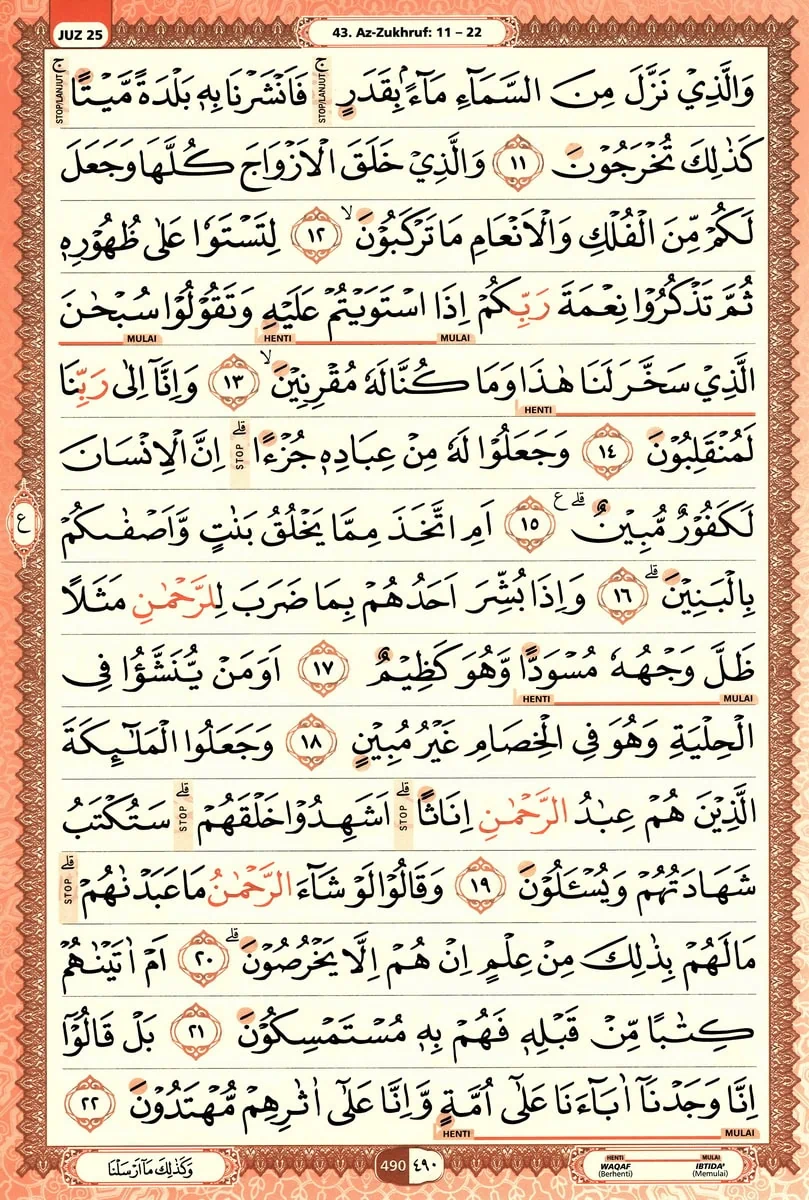 JUZ 25
43. Az-Zukhruf: 11 – 22
وَالَّذِيْ نَزَّلَ مِنَ السَّمَاۤءِ مَاۤءًۢ بِقَدَرٍۚ STOP/LANJUT فَاَنْشَرْنَا بِهٖ بَلْدَةً مَّيْتًاۚ STOP/LANJUT
كَذٰلِكَ تُخْرَجُوْنَ ١١ وَالَّذِيْ خَلَقَ الْاَزْوَاجَ كُلَّهَا وَجَعَلَ
لَكُمْ مِّنَ الْفُلْكِ وَالْاَنْعَامِ مَا تَرْكَبُوْنَۙ ١٢ لِتَسْتَوٗا عَلٰى ظُهُوْرِهٖ
ثُمَّ تَذْكُرُوْا نِعْمَةَ رَبِّكُمْ اِذَا اسْتَوَيْتُمْ عَلَيْهِ وَتَقُوْلُوْا سُبْحٰنَ
MULAI HENTI MULAI
الَّذِيْ سَخَّرَ لَنَا هٰذَا وَمَا كُنَّا لَهٗ مُقْرِنِيْنَۙ ١٣ وَاِنَّآ اِلٰى رَبِّنَا
HENTI
لَمُنْقَلِبُوْنَ ١٤ وَجَعَلُوْا لَهٗ مِنْ عِبَادِهٖ جُزْءًاۗ STOP اِنَّ الْاِنْسَانَ
لَكَفُوْرٌ مُّبِيْنٌۗ ࣖ ١٥ اَمِ اتَّخَذَ مِمَّا يَخْلُقُ بَنٰتٍ وَّاَصْفٰىكُمْ
ع
بِالْبَنِيْنَۗ ١٦ وَاِذَا بُشِّرَ اَحَدُهُمْ بِمَا ضَرَبَ لِلرَّحْمٰنِ مَثَلًا
ظَلَّ وَجْهُهٗ مُسْوَدًّا وَّهُوَ كَظِيْمٌ ١٧ اَوَمَنْ يُّنَشَّؤُا فِى
HENTI MULAI
الْحِلْيَةِ وَهُوَ فِى الْخِصَامِ غَيْرُ مُبِيْنٍ ١٨ وَجَعَلُوا الْمَلٰۤىِٕكَةَ
الَّذِيْنَ هُمْ عِبٰدُ الرَّحْمٰنِ اِنَاثًاۗ STOP اَشَهِدُوْا خَلْقَهُمْۗ STOP سَتُكْتَبُ
شَهَادَتُهُمْ وَيُسْـَٔلُوْنَ ١٩ وَقَالُوْا لَوْ شَاۤءَ الرَّحْمٰنُ مَا عَبَدْنٰهُمْۗ STOP
مَا لَهُمْ بِذٰلِكَ مِنْ عِلْمٍ اِنْ هُمْ اِلَّا يَخْرُصُوْنَۗ ٢٠ اَمْ اٰتَيْنٰهُمْ
كِتٰبًا مِّنْ قَبْلِهٖ فَهُمْ بِهٖ مُسْتَمْسِكُوْنَ ٢١ بَلْ قَالُوْٓا
اِنَّا وَجَدْنَآ اٰبَاۤءَنَا عَلٰٓى اُمَّةٍ وَّاِنَّا عَلٰٓى اٰثٰرِهِمْ مُّهْتَدُوْنَ ٢٢
HENTI MULAI
وَكَذٰلِكَ مَآ اَرْسَلْنَا
490 ٤٩٠
HENTI WAQAF (Berhenti) MULAI IBTIDA' (Memulai)